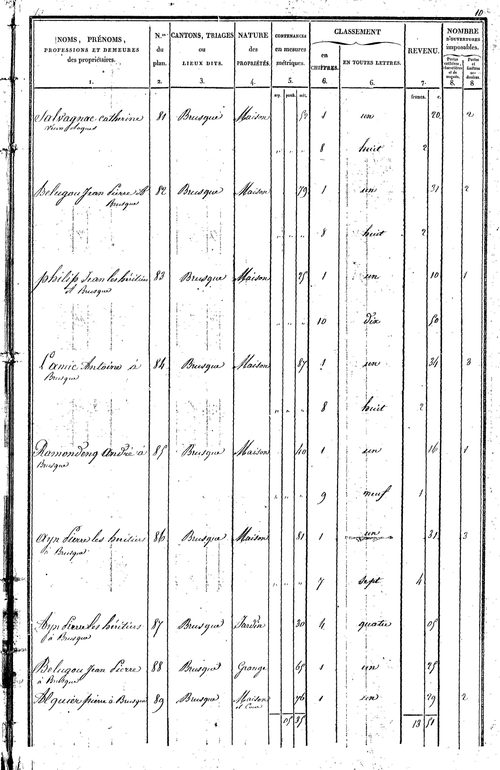 10
NOMS, PRÉNOMS, PROFESSIONS ET DEMEURES des propriétaires. 1.
N.os du plan. 2.
CANTONS, TRIAGES ou LIEUX DITS. 3.
NATURE des PROPRIÉTÉS. 4.
CONTENANCES en mesures métriques. 5.
CLASSEMENT
en CHIFFRES. 6.
EN TOUTES LETTRES. 6.
REVENU. 7.
NOMBRE D'OUVERTURES imposables.
8. 8.
francs. c.
Salvagnac Catherine 81 Brusque Maison 53 1 un 20 2
8 huit 2
Belugou Jean Pierre à 82 Brusque Maison 79 1 un 31 2
Brusque
8 huit 2
Philip Jean les héritiers 83 Brusque Maison 25 1 un 10 1
à Brusque
10 dix 50
Lamic Antoine à 84 Brusque Maison 87 1 un 34 3
Brusque
8 huit 2
Ramondenq André à 85 Brusque Maison 40 1 un 16 1
Brusque
9 neuf 1
Ayn Pierre les héritiers 86 Brusque Maison 81 1 un 31 3
à Brusque
7 sept 4
Ayn Pierre les héritiers 87 Brusque Jardin 30 4 quatre 05
à Brusque
Belugou Jean Pierre 88 Brusque Grange 65 1 un 25
à Brusque
Alquier pierre à Brusque 89 Brusque Maison et Cour 76 1 un 29 2
05 35 13 51